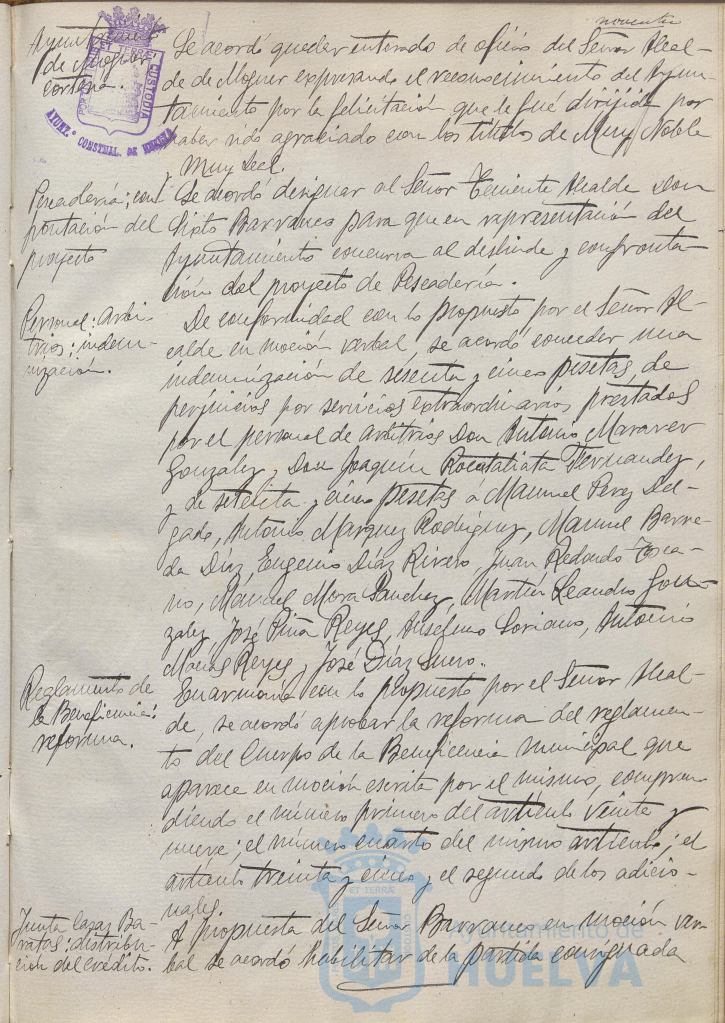 noventa
Ayuntamiento
de Moguer
cortesía.
Se acordó quedar enterado de oficio del Señor Alcal-
de de Moguer expresando el reconocimiento del Ayun-
tamiento por la felicitación que le fué dirijida por
haber sido agraciado con los títulos de Muy Noble
y Muy Leal.
Pescadería: con
frontación del
proyecto
Se acordó designar al Señor Teniente Alcalde Don
Barranco para que en representación del
Ayuntamiento concurra al deslinde y confronta-
ción del proyecto de Pescadería.
Personal: Arbi-
trios: indem-
nización.
De conformidad con lo propuesto por el Señor Al-
calde en moción verbal, se acordó conceder una
indemnización de sesenta y cinco pesetas de
perjuicios por servicios extraordinarios prestados
por el personal de arbitrios Don Antonio Maraver
Gonzalez, Don Joaquín Rocatallata Fernandez,
y de setenta y cinco pesetas á Manuel Perez Del-
gado, Antonio Marquez Rodriguez, Manuel Barre-
da Díaz, Eugenio Díaz Rivero, Juan Redondo
Manuel Mora Sanchez, Martín Leandro Gon-
zalez, José Piña Reyes, Anselmo Soriano, Antonio
Macías Reyes y José Díaz Suero.
Reglamento de
la Beneficencia:
reforma.
En armonía con lo propuesto por el Señor Alcal-
de, se acordó aprobar la reforma del reglamen-
to del Cuerpo de la Beneficencia municipal que
aparece en moción escrita por el mismo, compren-
diendo el número primero del artículo veinte y
nueve; el número cuarto del mismo artículo; el
artículo treinta y cinco y el segundo de los adicio-
nales.
Junta casas Ba-
ratas: distribu-
ción del crédito.
A propuesta del Señor Barranco en moción ver-
bal se acordó habilitar de la partida consignada
AYUNT.º CONSTNAL. DE HUELVA
PORTUS MARIS ET TERRÆ CUSTODIA
Ayuntamiento de
HUELVA